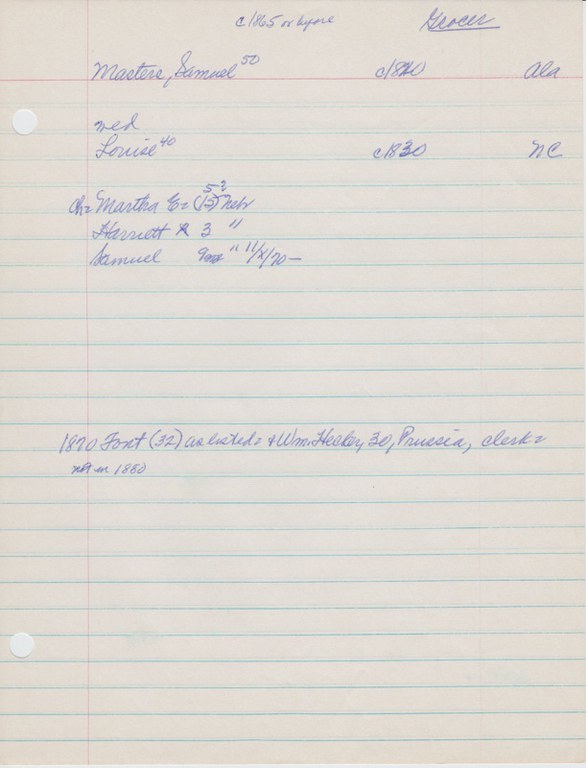 c1865 or before Grocer
Masters, Samuel 50 c1820 Ala
med
Louise 40 c1830 NC
5?
ch= Martha E= (15) Nebr
Harriett R 3 "
Samuel 9mos " 11/x/70 —
1870 Font (32) as listed= + Wm. 30, Prussia, clerk=
not in 1880